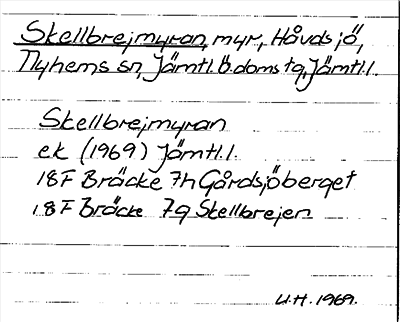 Skellbrejmyran, myr, Håvdsjö,
Nyhems sn, Jämtl.Ö.doms tg, Jämtl.l.
Skellbrejmyran
ek (1969) Jämtl.l.
18F Bräcke 7h Gårdsjöberget
18F Bräcke 7g Skellbrejen
U.H. 1969.